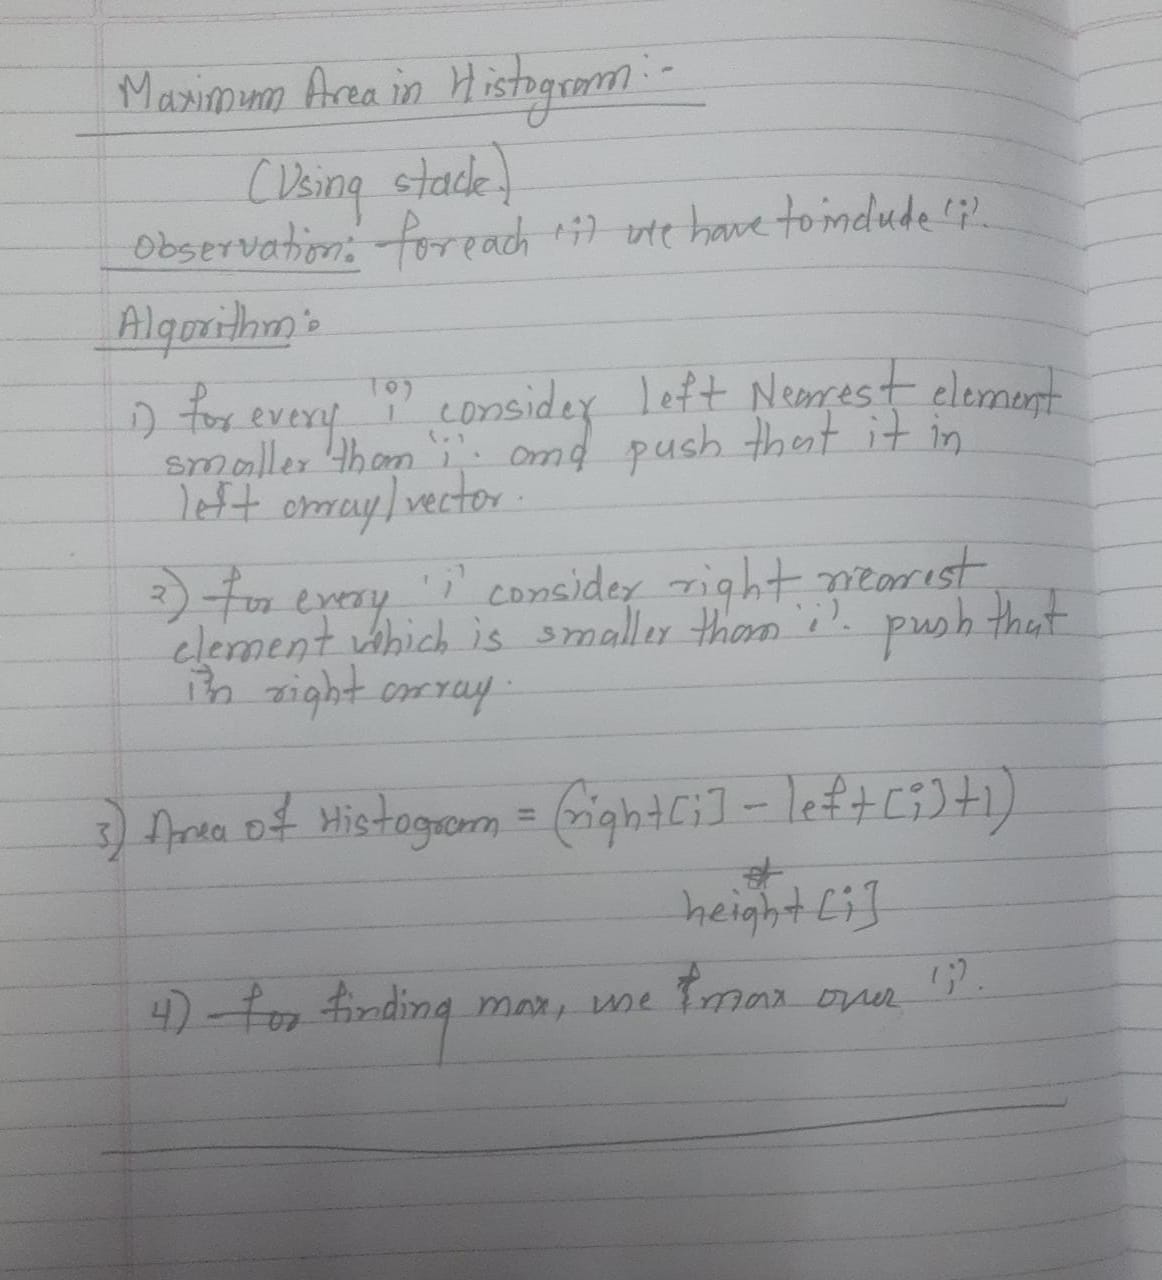 Maximum Area in Histogram :-
(Using stack)
Observation: for each 'i' we have to include 'i'.
Algorithm:
1) for every 'i' consider left Nearest element
smaller than 'i'. and push that it in
left array/vector.
2) for every 'i' consider right nearest
element which is smaller than 'i'. push that
in right array.
3) Area of Histogram = (right[i] - left[i]+1)
*
height [i]
4) for finding max, use max over 'i'.